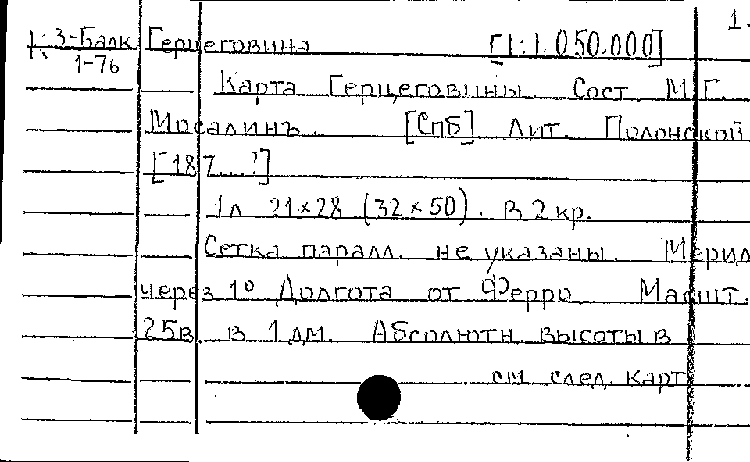 1.
К: 3-Балк Герцеговина [1:1.050.000]
1-76
Карта Герцеговины. Сост. М.Г.
Мосалинъ. [Спб] Лит. Полонской
[187...?]
1л 21×28 (32×50). в 2 кр.
Сетка паралл. не указаны. Мерид
через 1° Долгота от Ферро. Масшт.
25в. в 1 дм. Абсолютн. высоты в
см. след. карт